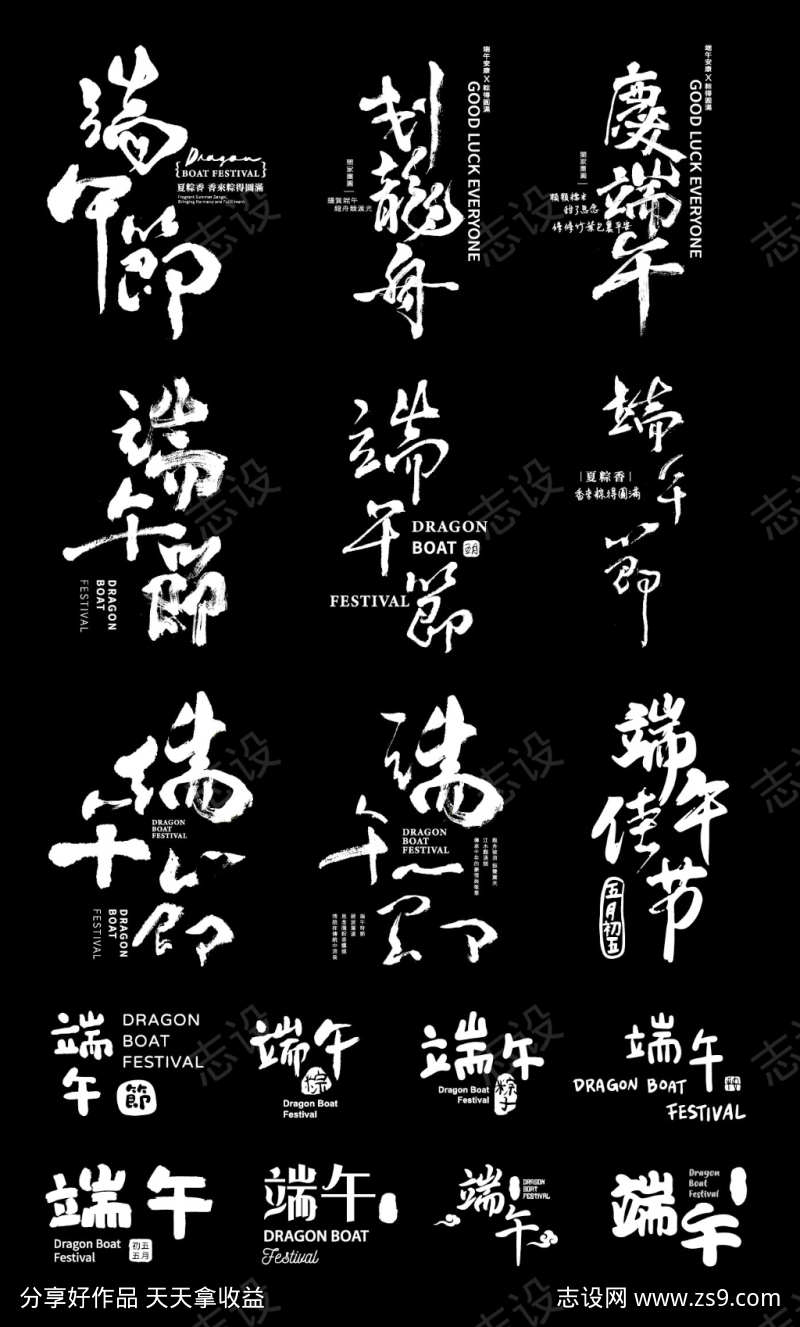 端午節
Dragon
BOAT FESTIVAL
夏粽香 香來粽得圓滿
划龍舟
闔家團圓
端午安康X粽得圓滿
GOOD LUCK EVERYONE
慶端午
闔家團圓
端午安康X粽得圓滿
GOOD LUCK EVERYONE
端午節
DRAGON
BOAT
FESTIVAL
端午節
DRAGON
BOAT
FESTIVAL
端午節
夏粽香
香來粽得圓滿
端午節
DRAGON
BOAT
FESTIVAL
DRAGON
BOAT
FESTIVAL
端午節
DRAGON
BOAT
FESTIVAL
端午佳节
五月初五
端午
節
DRAGON
BOAT
FESTIVAL
端午
粽
Dragon Boat
Festival
端午
粽子
Dragon Boat
Festival
端午
DRAGON BOAT
FESTIVAL
端午
Dragon Boat
Festival
初五
五月
端午
DRAGON BOAT
Festival
端午
DRAGON
BOAT
FESTIVAL
端午
Dragon
Boat
Festival
志设
分享好作品 天天拿收益
志设网 www.zs9.com